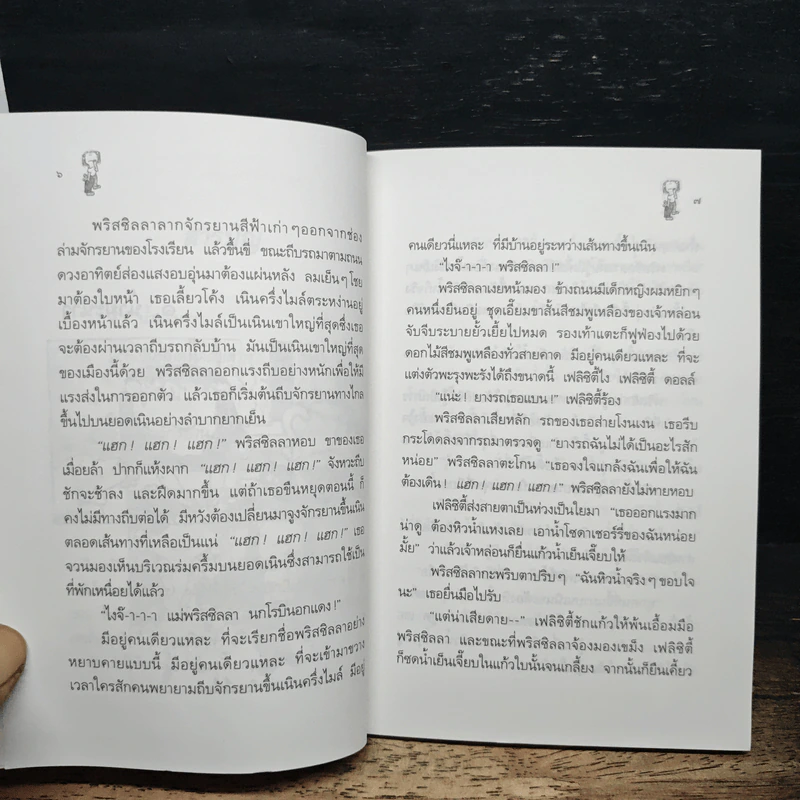 ๖
พริสซิลลาลากจักรยานสีฟ้าเก่าๆออกจากช่อง
ล่ามจักรยานของโรงเรียน แล้วขึ้นขี่ ขณะถีบรถมาตามถนน
ดวงอาทิตย์ส่องแสงอบอุ่นมาต้องแผ่นหลัง ลมเย็นๆโชย
มาต้องใบหน้า เธอเลี้ยวโค้ง เนินครึ่งไมล์ตระหง่านอยู่
เบื้องหน้าแล้ว เนินครึ่งไมล์เป็นเนินเขาใหญ่ที่สุดซึ่งเธอ
จะต้องผ่านเวลาถีบรถกลับบ้าน มันเป็นเนินเขาใหญ่ที่สุด
ของเมืองนี้ด้วย พริสซิลลาออกแรงถีบอย่างหนักเพื่อให้มี
แรงส่งในการออกตัว แล้วเธอก็เริ่มต้นถีบจักรยานทางไกล
ขึ้นไปบนยอดเนินอย่างลำบากยากเย็น
“แฮก! แฮก! แฮก!” พริสซิลลาหอบ ขาของเธอ
เมื่อยล้า ปากก็แห้งผาก “แฮก! แฮก! แฮก!” จังหวะถีบ
ชักจะช้าลง และฝืดมากขึ้น แต่ถ้าเธอขืนหยุดตอนนี้ ก็
คงไม่มีทางถีบต่อได้ มีหวังต้องเปลี่ยนมาจูงจักรยานขึ้นเนิน
ตลอดเส้นทางที่เหลือเป็นแน่ “แฮก! แฮก! แฮก!” เธอ
จวนมองเห็นบริเวณร่มครึ้มบนยอดเนินซึ่งสามารถใช้เป็น
ที่พักเหนื่อยได้แล้ว
“ไงจ๊-า-า-า แม่พริสซิลลา นกโรบินอกแดง!”
มีอยู่คนเดียวแหละ ที่จะเรียกชื่อพริสซิลลาอย่าง
หยาบคายแบบนี้ มีอยู่คนเดียวแหละ ที่จะเข้ามาขวาง
เวลาใครสักคนพยายามถีบจักรยานขึ้นเนินครึ่งไมล์ มีอยู่
๗
คนเดียวนี่แหละ ที่มีบ้านอยู่ระหว่างเส้นทางขึ้นเนิน
“ไงจ๊-า-า-า พริสซิลลา!”
พริสซิลลาเงยหน้ามอง ข้างถนนมีเด็กหญิงผมหยิกๆ
คนหนึ่งยืนอยู่ ชุดเอี๊ยมขาสั้นสีชมพูเหลืองของเจ้าหล่อน
จับจีบระบายยั้วเยี้ยไปหมด รองเท้าแตะก็ฟูฟ่องไปด้วย
ดอกไม้สีชมพูเหลืองทั่วสายคาด มีอยู่คนเดียวแหละ ที่จะ
แต่งตัวพะรุงพะรังได้ถึงขนาดนี้ เฟลิซิตี้ไง เฟลิซิตี้ ดอลล์
“แน่ะ! ยางรถเธอแบน!” เฟลิซิตี้ร้อง
พริสซิลลาเสียหลัก รถของเธอส่ายโงนเงน เธอรีบ
กระโดดลงจากรถมาตรวจดู “ยางรถฉันไม่ได้เป็นอะไรสัก
หน่อย” พริสซิลลาตะโกน “เธอจงใจแกล้งฉันเพื่อให้ฉัน
ต้องเดิน! แฮก! แฮก! แฮก!” พริสซิลลายังไม่หายหอบ
เฟลิซิตี้ส่งสายตาเป็นห่วงเป็นใยมา “เธอออกแรงมาก
น่าดู ต้องหิวน้ำแหงเลย เอาน้ำโซดาเชอร์รี่ของฉันหน่อย
มั้ย” ว่าแล้วเจ้าหล่อนก็ยื่นแก้วน้ำเย็นเจี๊ยบให้
พริสซิลลากะพริบตาปริบๆ “ฉันหิวน้ำจริงๆขอบใจ
นะ” เธอยื่นมือไปรับ
“แต่น่าเสียดาย--” เฟลิซิตี้ชักแก้วให้พ้นเอื้อมมือ
พริสซิลลา และขณะที่พริสซิลลาจ้องมองเขม็ง เฟลิซิตี้
ก็ซดน้ำเย็นเจี๊ยบในแก้วใบนั้นจนเกลี้ยง จากนั้นก็ยืนเคี้ยว